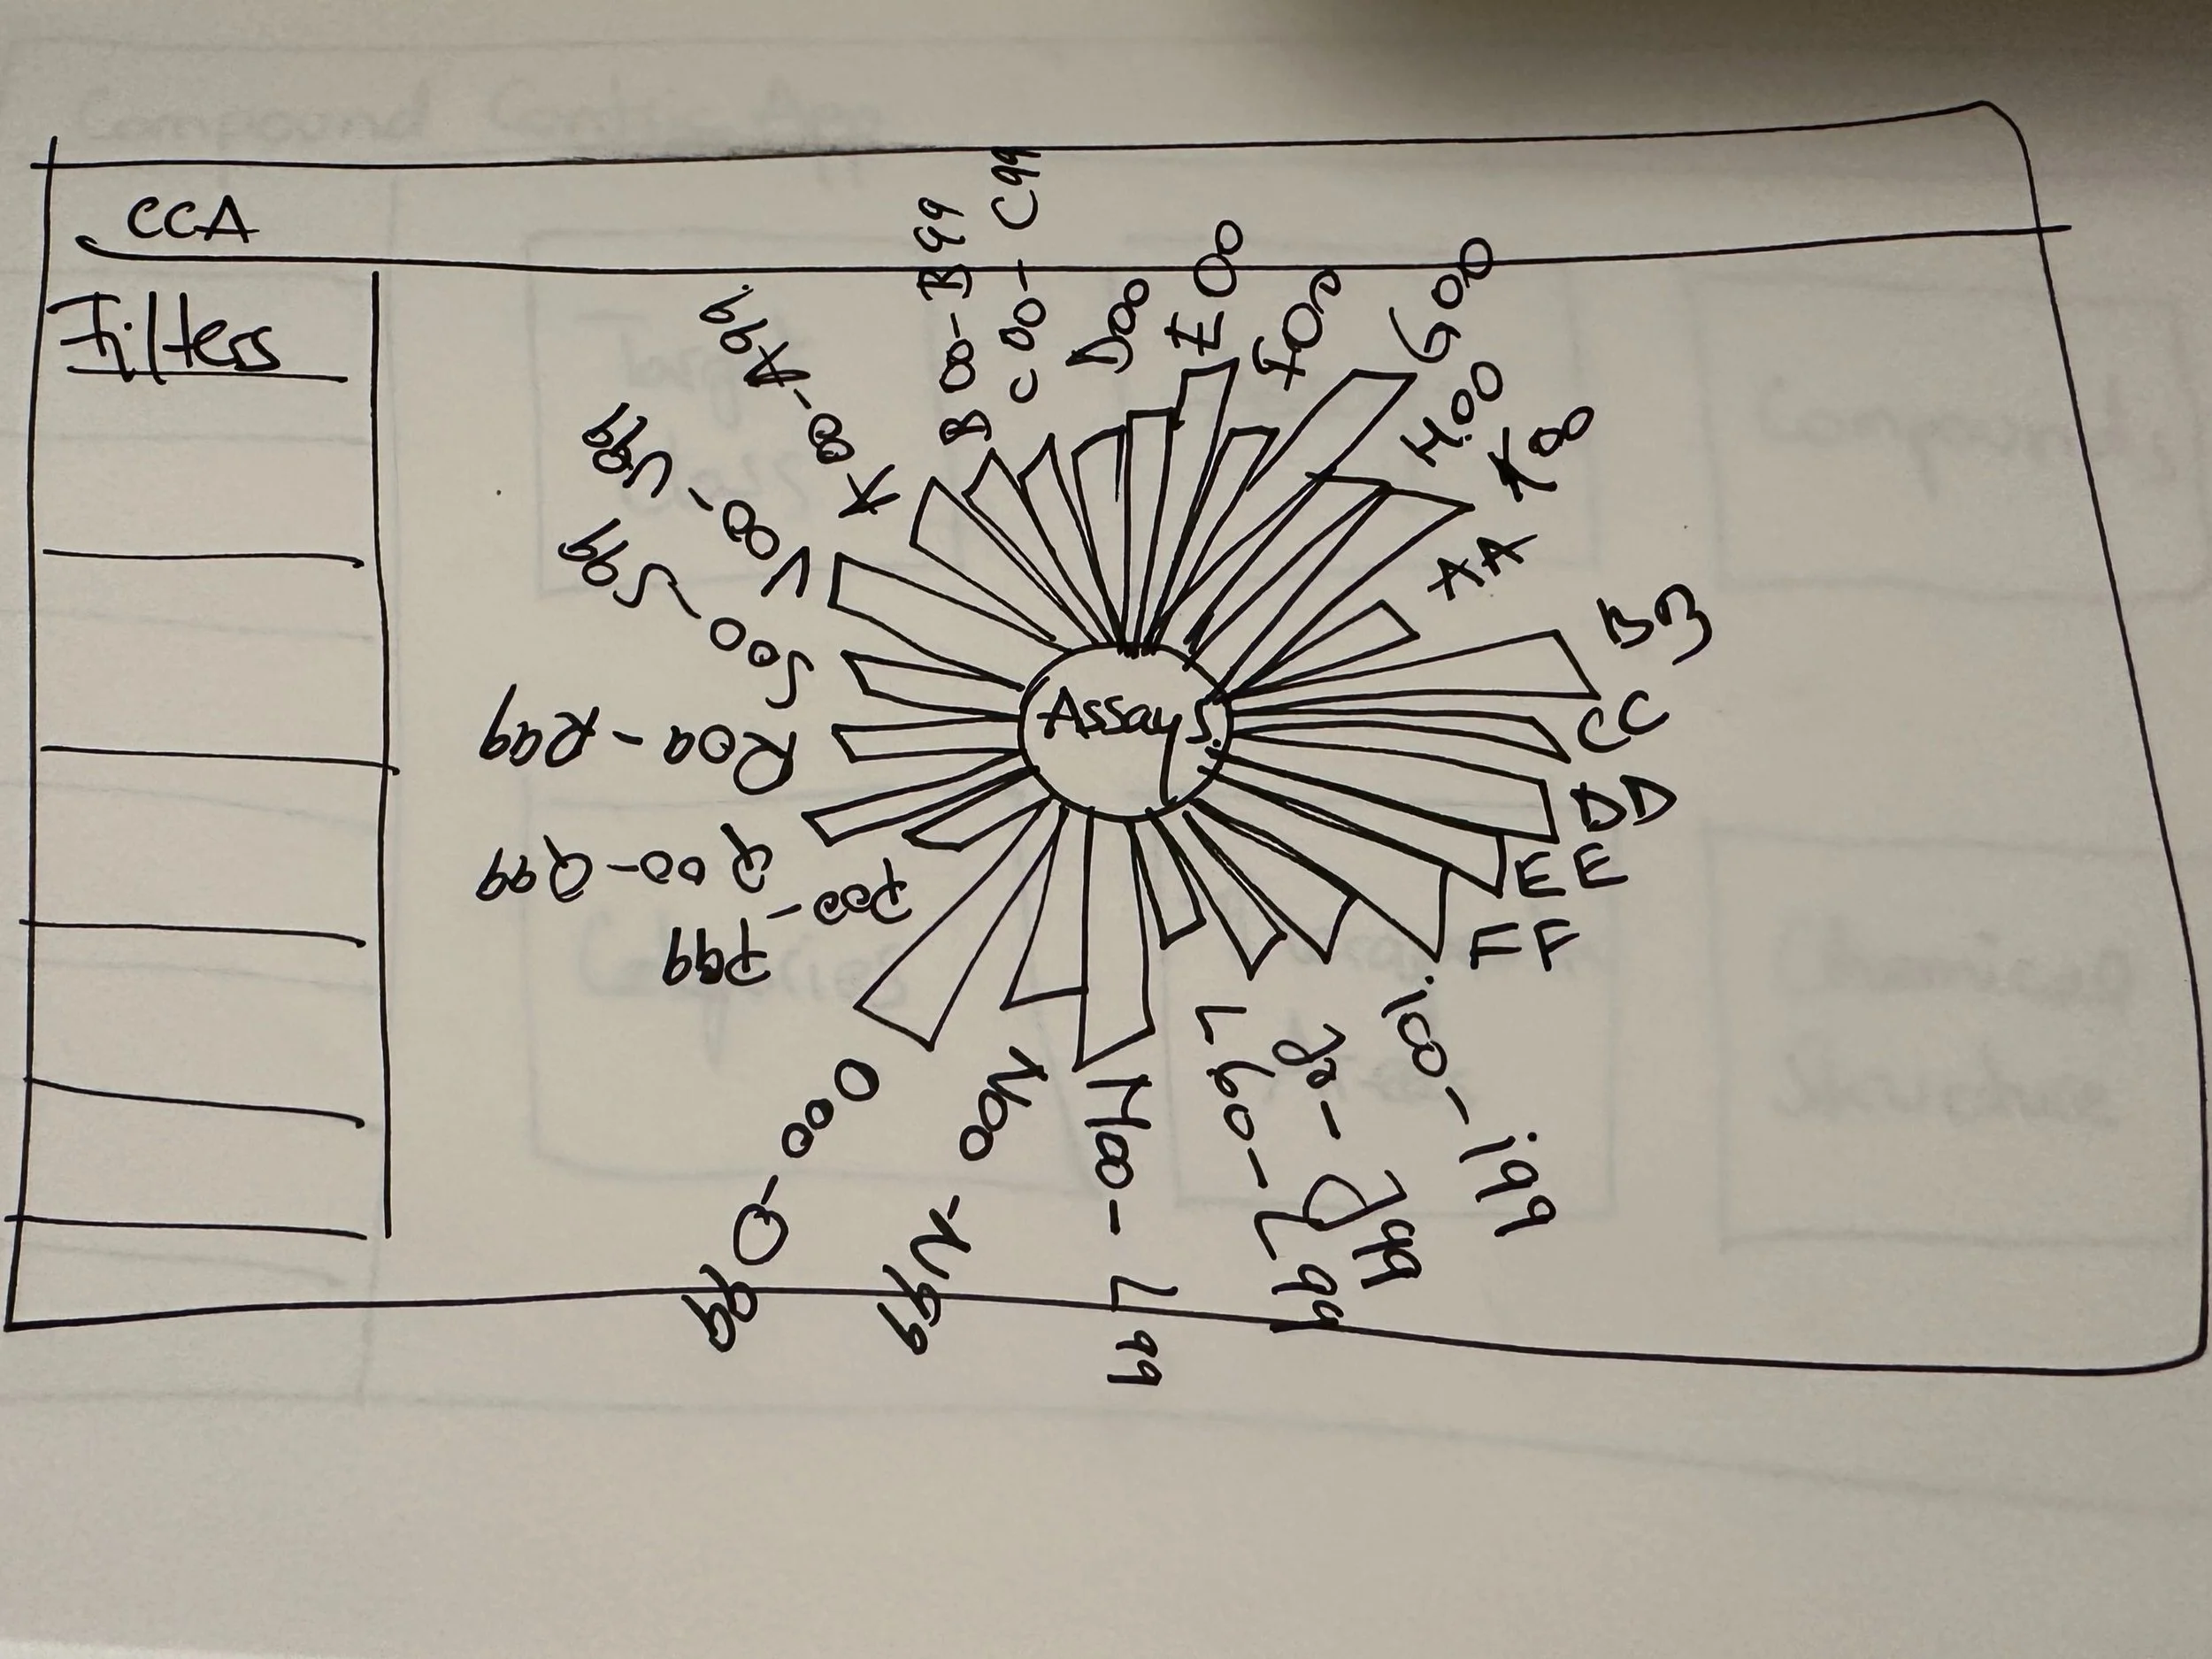 CCA
Filters
Assays.
A00-A99
B00-B99
C00-C99
D00
E00
F00
G00
H00
K00
AA
BB
CC
DD
EE
FF
i00-i99
L00-L99
M00-L99
N00-N99
O00-O99
P00-P99
Q00-Q99
R00-R99
S00-S99
V00-U99
Compound
App